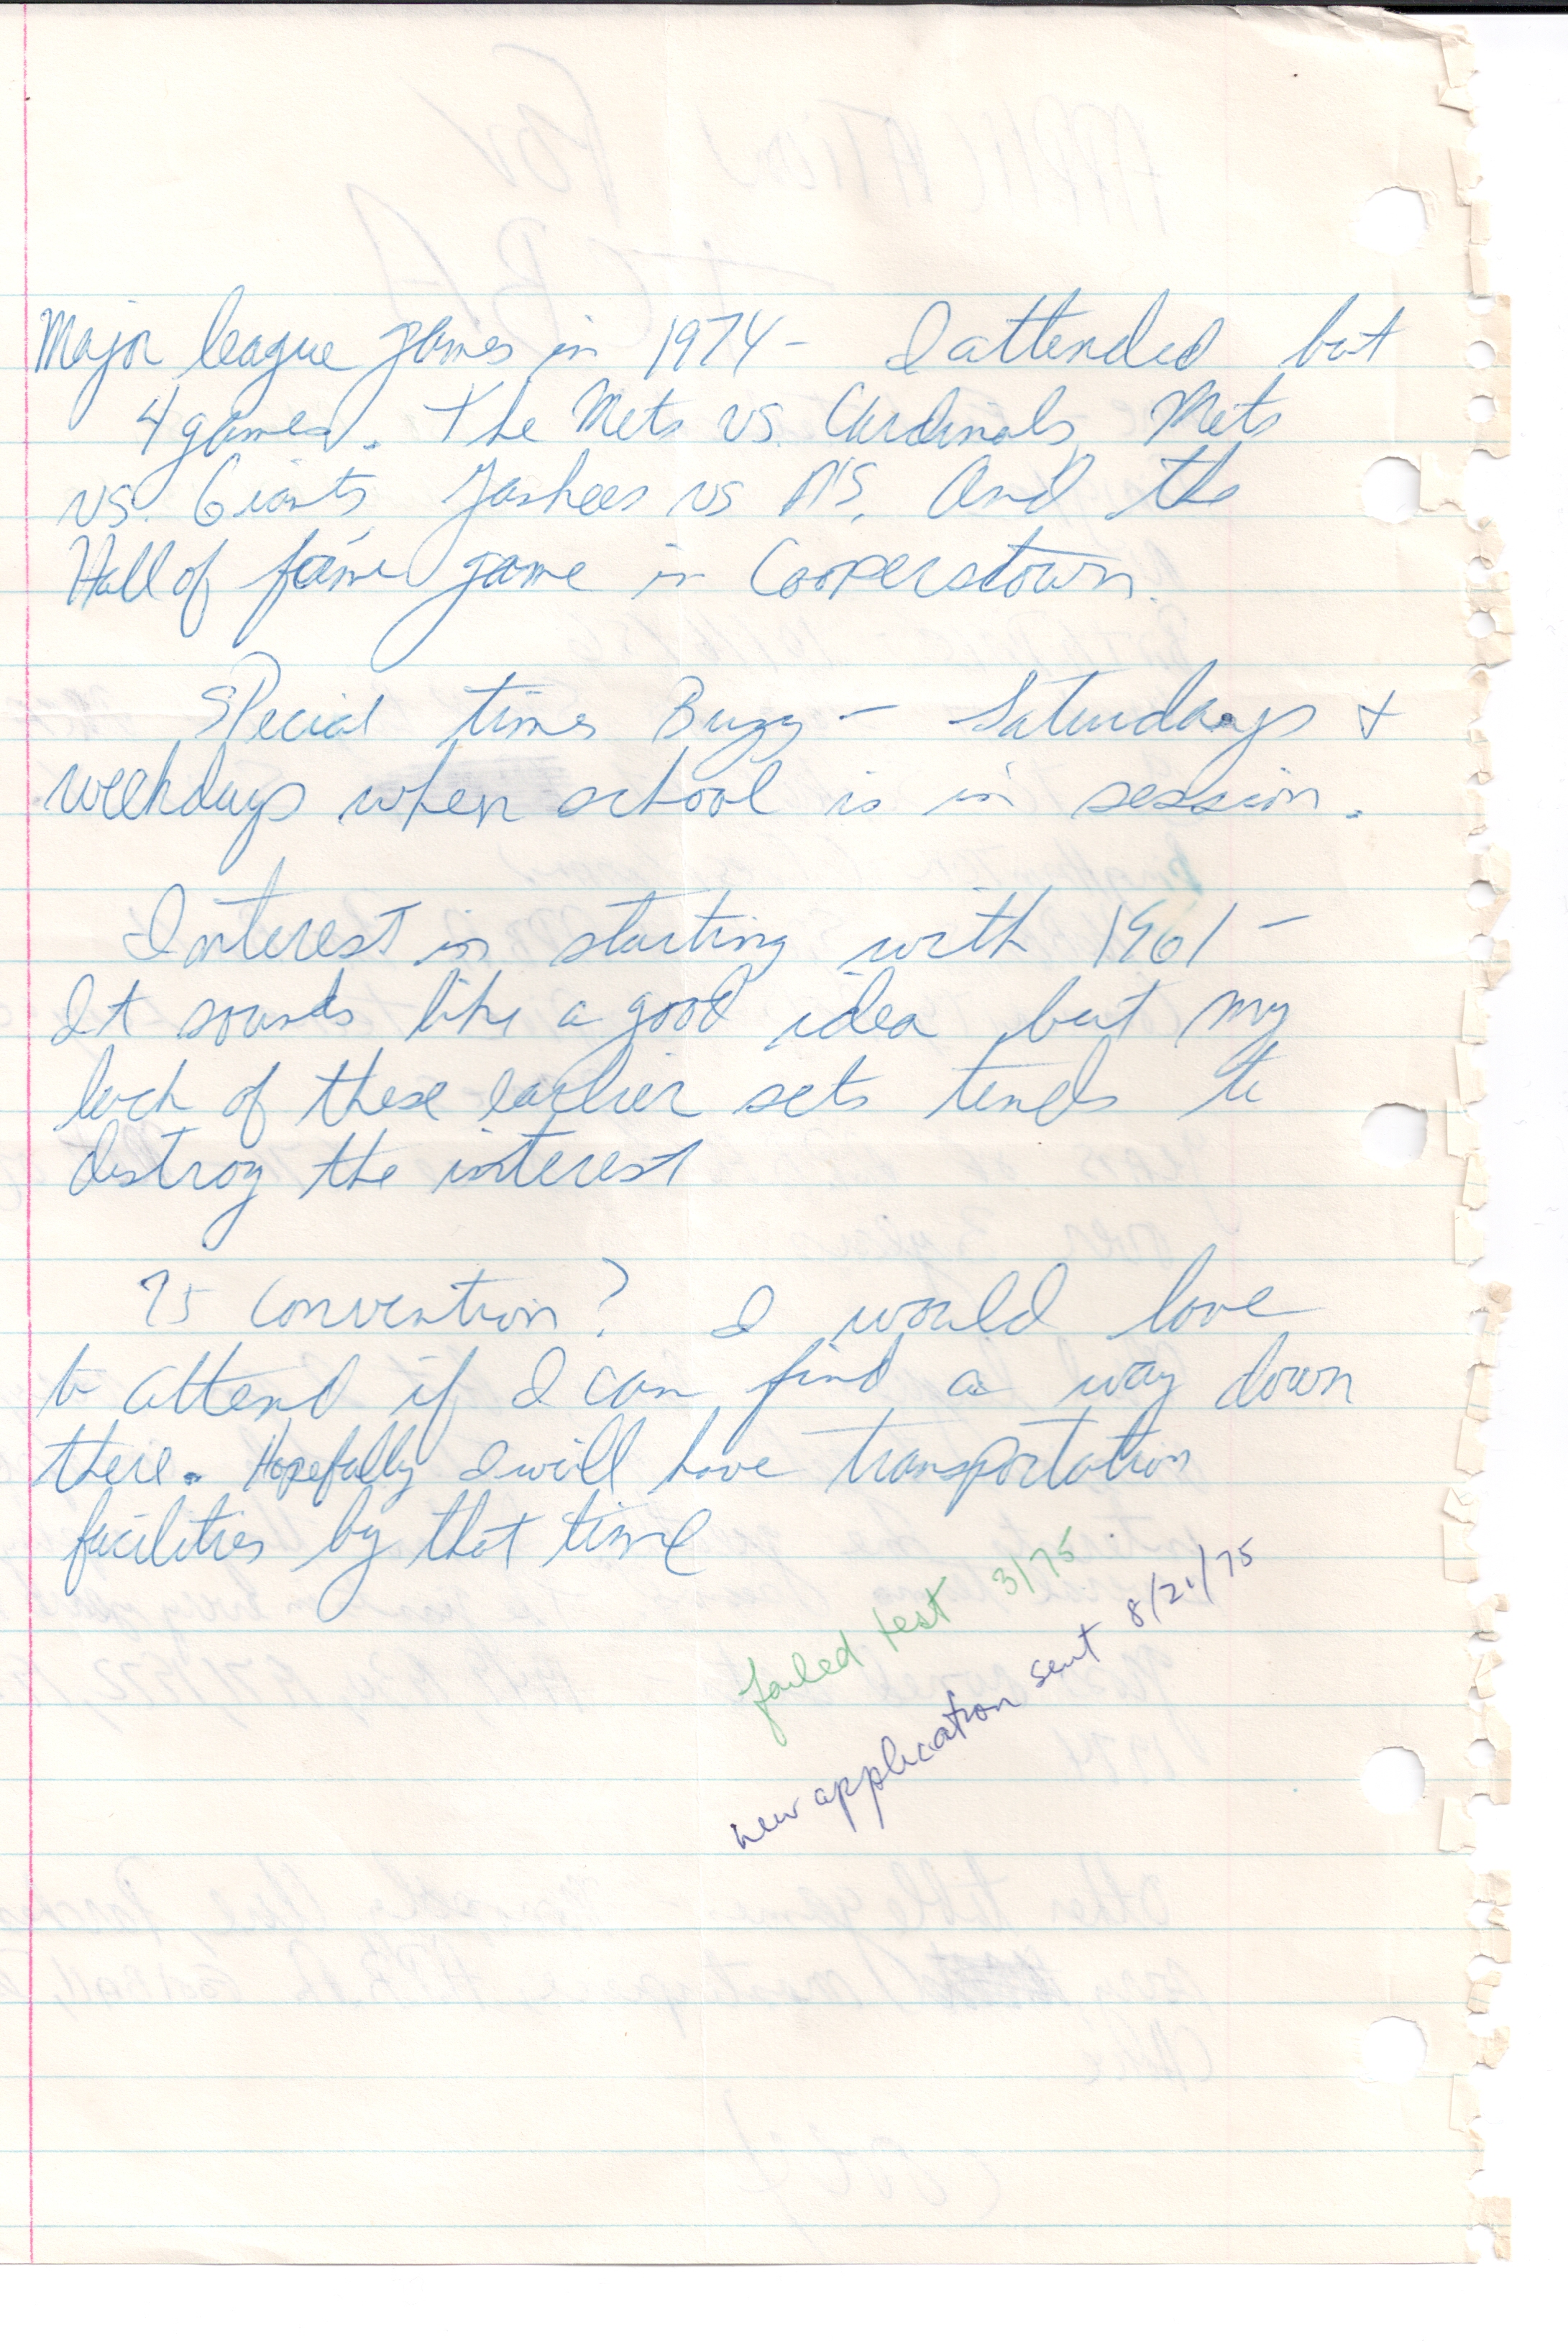 Major league games in 1974 - I attended but
4 games. The Mets vs. Cardinals, Mets
vs. Giants, Yankees vs A's, and the
Hall of fame game in Cooperstown.
Special times Buzy - Saturdays +
weekdays when school is in session.
Interest in starting with 1961 -
It sounds like a good idea but my
lack of these earlier sets tends to
destroy the interest
75 convention? I would love
to attend if I can find a way down
there. Hopefully I will have transportation
facilities by that time
failed test 3/75
new application sent 8/21/75